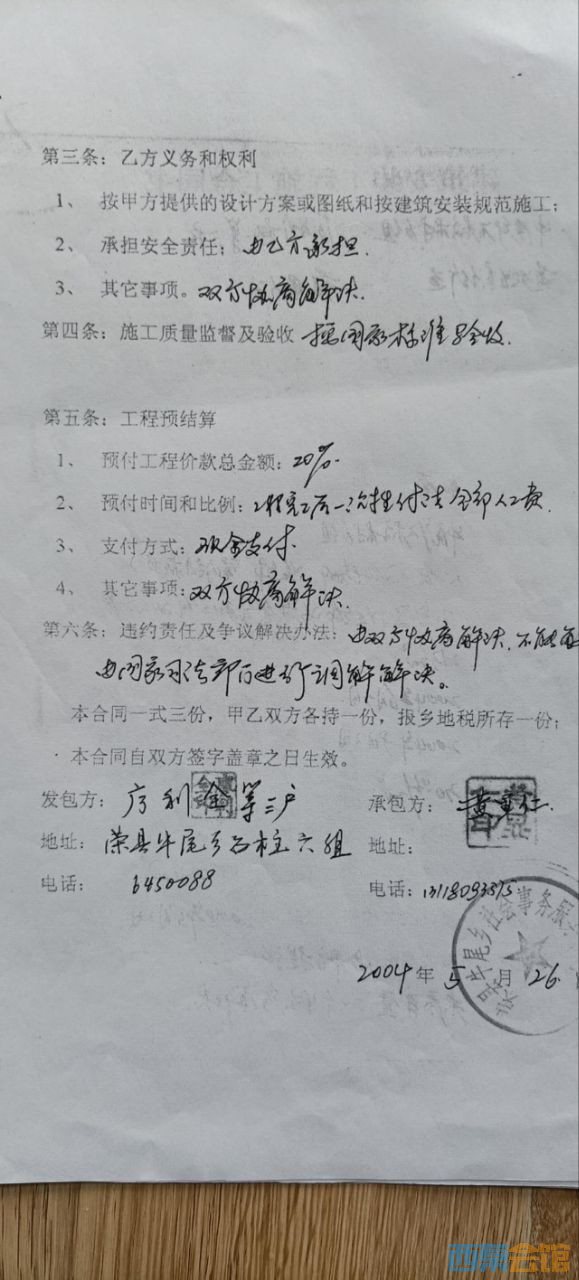 第三条：乙方义务和权利
1、 按甲方提供的设计方案或图纸和按建筑安装规范施工；
2、 承担安全责任；由乙方承担.
3、 其它事项。双方协商解决.
第四条：施工质量监督及验收 按国家标准验收.
第五条：工程预结算
1、 预付工程价款总金额：20%.
2、 预付时间和比例：工程完工后一次性付清全部人工费.
3、 支付方式：现金支付.
4、 其它事项：双方协商解决.
第六条：违约责任及争议解决办法：由双方协商解决.不能
由国家司法部门进行调解解决。
本合同一式三份，甲乙双方各持一份，报乡地税所存一份；
本合同自双方签字盖章之日生效。
发包方： 利金等三户
承包方： 黄 仁.
地址： 荣县牛尾乡石柱六组
地址：
电话： 6450088
电话：
牛尾乡社会事务服
2004年5月26
西祠会馆